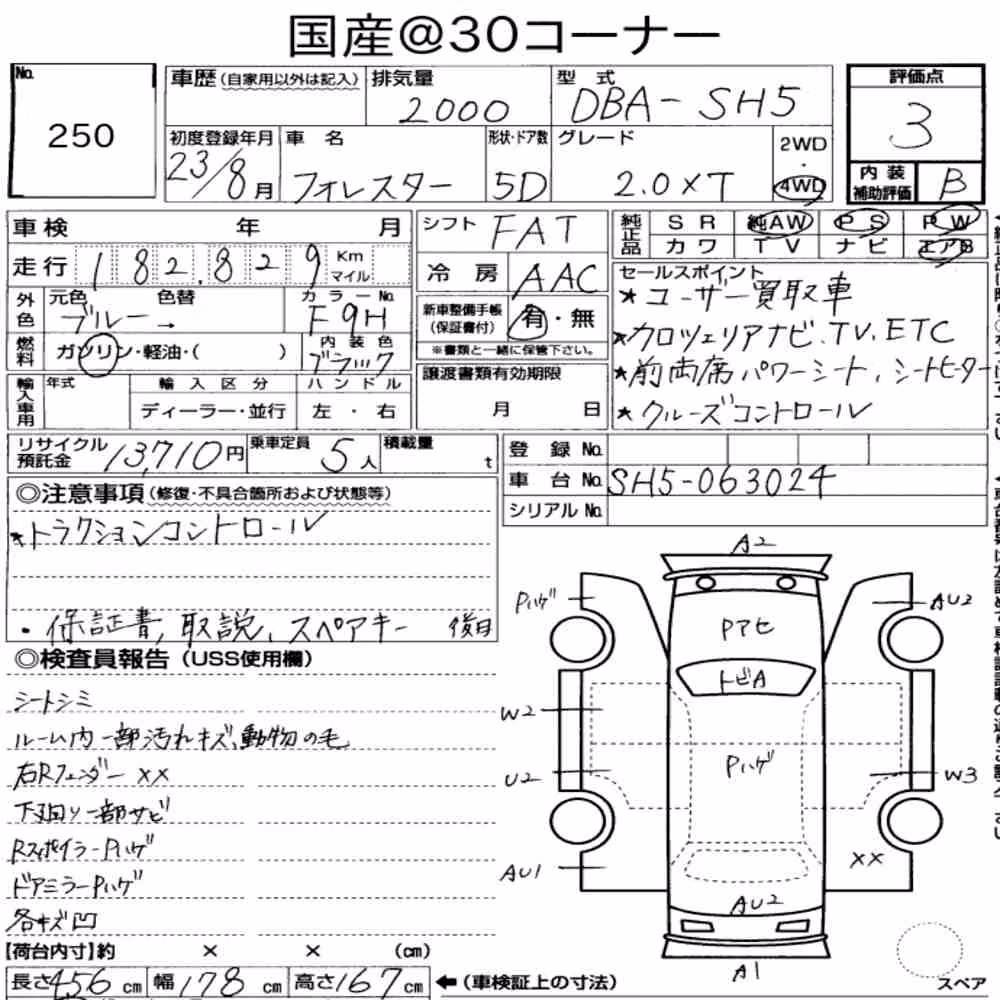 国産@30コーナー
No.
250
車歴(自家用以外は記入)
排気量
2000
型式
DBA-SH5
評価点
3
初度登録年月
23/8月
車名
フォレスター
形状・ドア数
5D
グレード
2.0XT
2WD
・
4WD
内装
補助評価
B
車検 年 月
シフト
FAT
純正品
SR 純AW PS PW
カワ TV ナビ エアB
走行 182,829 Km マイル
冷房
AAC
外色
元色 色替
ブルー→
カラーNo.
F9H
新車整備手帳
(保証書付)
有・無
※書類と一緒に保管下さい。
燃料
ガソリン・軽油・( )
内装色
ブラック
セールスポイント
★ユーザー買取車
★カロッツェリアナビ.TV.ETC
★前両席パワーシート、シートヒーター
★クルーズコントロール
輸入車用
年式
輸入区分
ディーラー・並行
ハンドル
左・右
譲渡書類有効期限
月 日
リサイクル
預託金
13,710円
乗車定員
5人
積載量
t
登録No.
車台No.
SH5-063024
シリアルNo.
◎注意事項(修復・不具合箇所および状態等)
★トラクションコントロール
・保証書、取説、スペアキー 後日
◎検査員報告(USS使用欄)
シートシミ
ルーム内一部汚れキズ、動物の毛
右Rフェンダー XX
下回り一部サビ
Rスポイラー Pハゲ
ドアミラーPハゲ
各キズ凹
【荷台内寸】約 × × (cm)
長さ456cm 幅178cm 高さ167cm
←(車検証上の寸法)
A2
Pハゲ
AU2
Pアセ
トビA
W2
Pハゲ
U2
W3
AU1
XX
AU2
A1
スペア